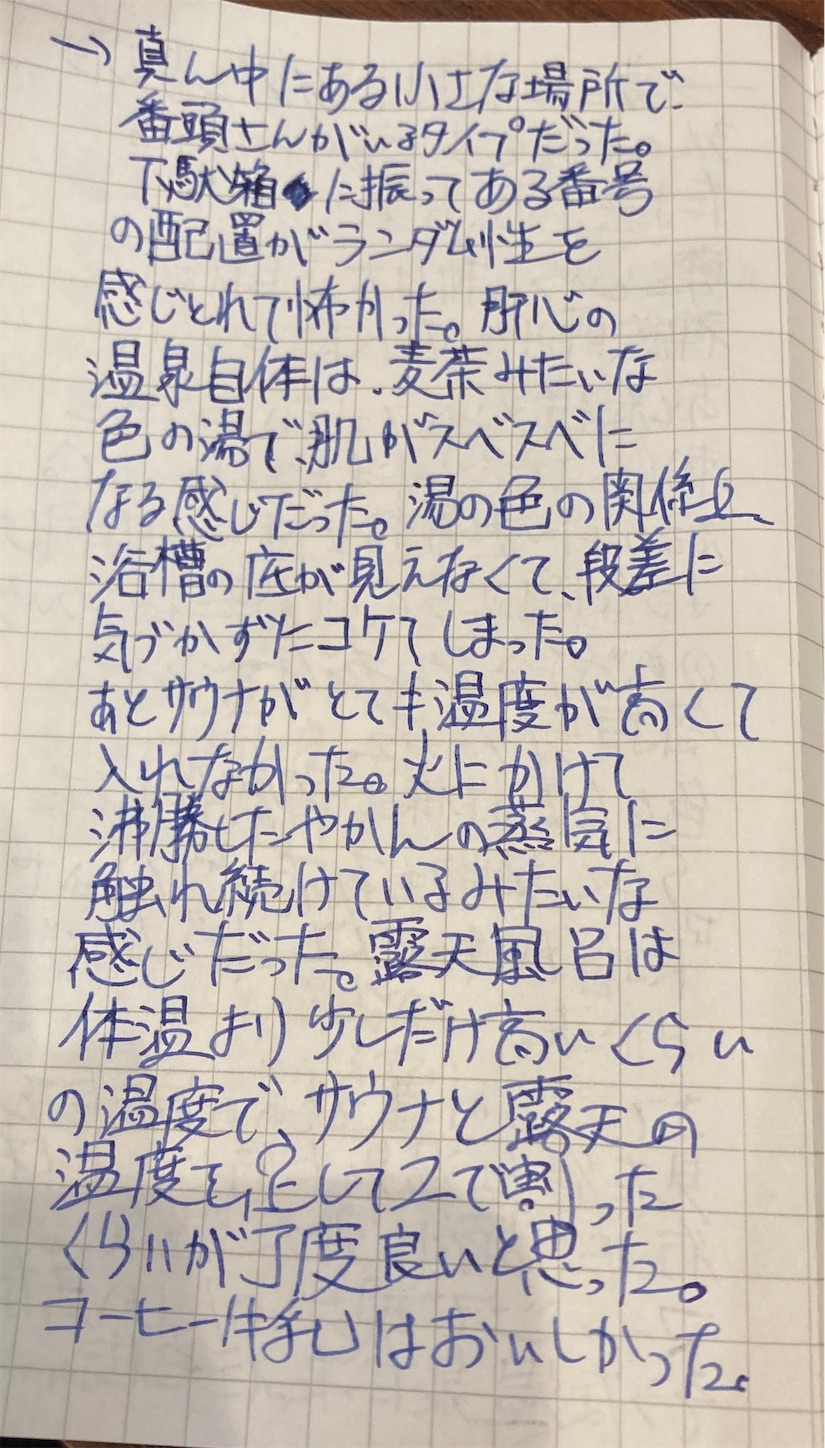 →真ん中にある小さな場所で、
番頭さんがいるタイプだった。
下駄箱に振ってある番号
の配置がランダム性を
感じとれて怖かった。肝心の
温泉自体は、麦茶みたいな
色の湯で、肌がスベスベに
なる感じだった。湯の色の関係上
浴槽の底が見えなくて、段差に
気づかずにコケてしまった。
あとサウナがとても温度が高くて
入れなかった。火にかけて
沸騰したやかんの蒸気に
触れ続けているみたいな
感じだった。露天風呂は
体温より少しだけ高いくらい
の温度で、サウナと露天の
温度を足して2で割った
くらいが丁度良いと思った。
コーヒー牛乳はおいしかった。